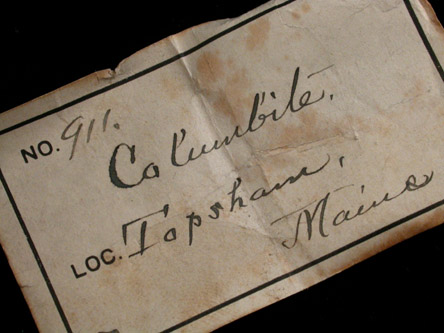 NO. 911.
Columbite.
LOC. Topsham,
Maine